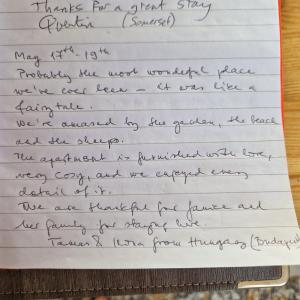 Thanks for a great stay
Quentin (Somerset)
May 17th - 19th
Probably the most wonderful place
we've ever been - it was like a
fairytale.
We're amazed by the garden, the beach
and the sheeps.
The apartment is furnished with love,
very cosy, and we enjoyed every
detail of it.
We are thankful for Janice and
her family for staying here.
Tamas & from Hungary (Budapest)